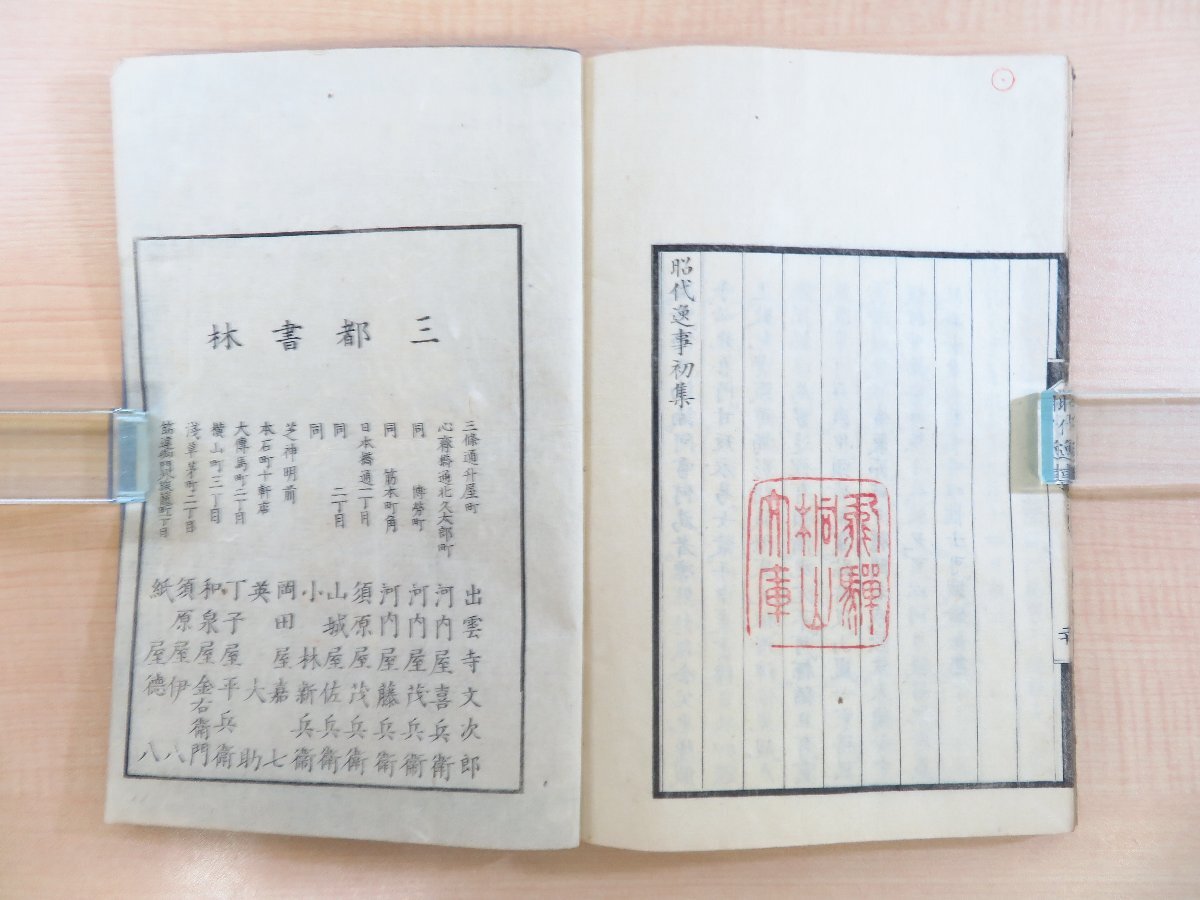 昭代逸事初集
桐山
文庫
三都書林
三條通升屋町　出雲寺文次郎
心齋橋通北久太郎町　河内屋喜兵衛
同　博勞町　河内屋茂兵衛
同　筋本町角　河内屋藤兵衛
日本橋通一丁目　須原屋茂兵衛
同　二丁目　山城屋佐兵衛
同　小林新兵衛
芝神明前　岡田屋嘉七
本石町十軒店　英大助
大傳馬町二丁目　丁子屋平兵衛
橫山町三丁目　和泉屋金右衛門
淺草茅町二丁目　須原屋伊八
紙屋德八